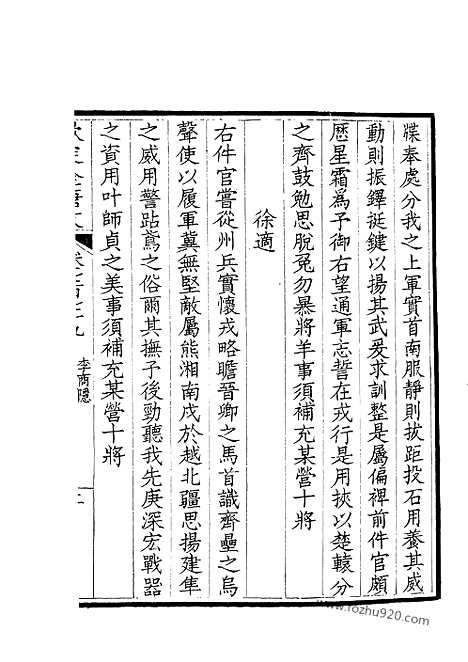 牒奉處分我之上軍實首南服靜則拔距投石用養其威
動則振鐸挺鍵以揚其武爰求訓整是屬偏裨前件官頗
歷星霜爲予御右望通軍忘誓在戎行是用挾以楚轅分
之齊鼓勉思脫兔勿暴將羊事須補充某營十將
徐適
右件官嘗從州兵實懷戎略瞻晉卿之馬首識齊壘之烏
聲使以履軍冀無堅敵屬熊湘南戍於越北疆思揚建隼
之威用警跕鳶之俗爾其撫予後勁聽我先庚深宏戰器
之資用叶師貞之美事須補充某營十將
欽定全唐文
卷七百七十九
李商隱
www.fozhu920.com